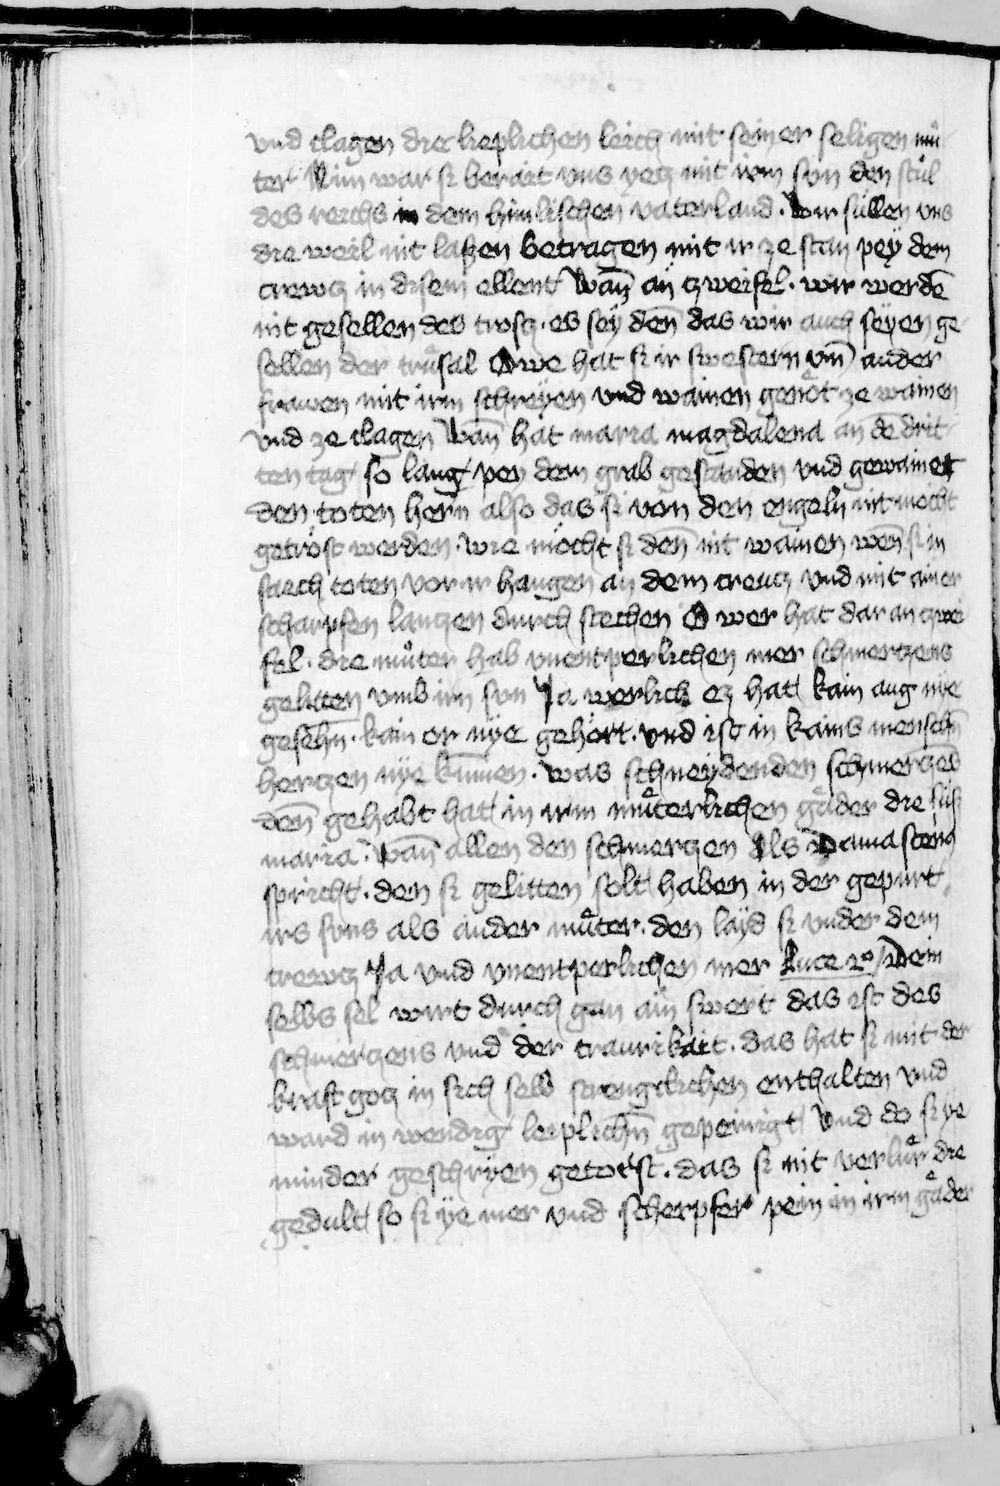 vnd clagen die lieplichen leich mit seiner seligen mů-
ter Nim war si berait vns yetz mit irm sun den stůl
des reichs in dem himlischen vaterland. Wir süllen vns
die weil nit laßen betragen mit ir ze stan peÿ dem
crewtz in disem ellent Wañ an zweifel. wir werdē
nit gesellen des trostz. es seÿ deñ das wir auch seyen ge-
sellen der trůsal Owe hat si ir swestern vñ ander
frawen mit irm schreÿen vnd wainen genöt ze wainen
vnd ze clagen Wañ hat maria magdalena an dē drit-
ten tag so lang pey dem grab gestanden vnd gewainet
den toten hern also das si von den engeln nit mocht
getröst werden. wie möcht si deñ nit wainen weñ si in
sach toten vor ir hangen an dem creutz vnd mit ainer
scharpfen lantzen durch stechen O wer hat dar an zwei-
fel. die můter hab vnentperlichen mer schmertzens
gelitten vmb irn sun Ja werlich ez hat kain aug nye
gesehn. kain or nÿe gehört. vnd ist in kains menschñ
hertzen nÿe kummen. was schneydenden schmertzens
deñ gehabt hat in irm můterlichen gåder die süß
maria. Wañ allen den schmerczen Als Damascenus
spricht. den si gelitten solt haben in der gepurt
irs suns als ander můter. den laÿd si vnder dem
crewtz Ja vnd vnentperlichen mer Luce 2º Dein
selbs sel wirt durch gan ain swert das ist des
schmertzens vnd der traurikait. das hat si mit der
kraft gotz in sich selb strengclichen enthalten vnd
ward in wendig leiplichñ gepeinigt Vnd do si ye
minder geschryen getorst. das si nit verlůr die
gedult so si ÿe mer vnd scherpfer pein in irm gåder